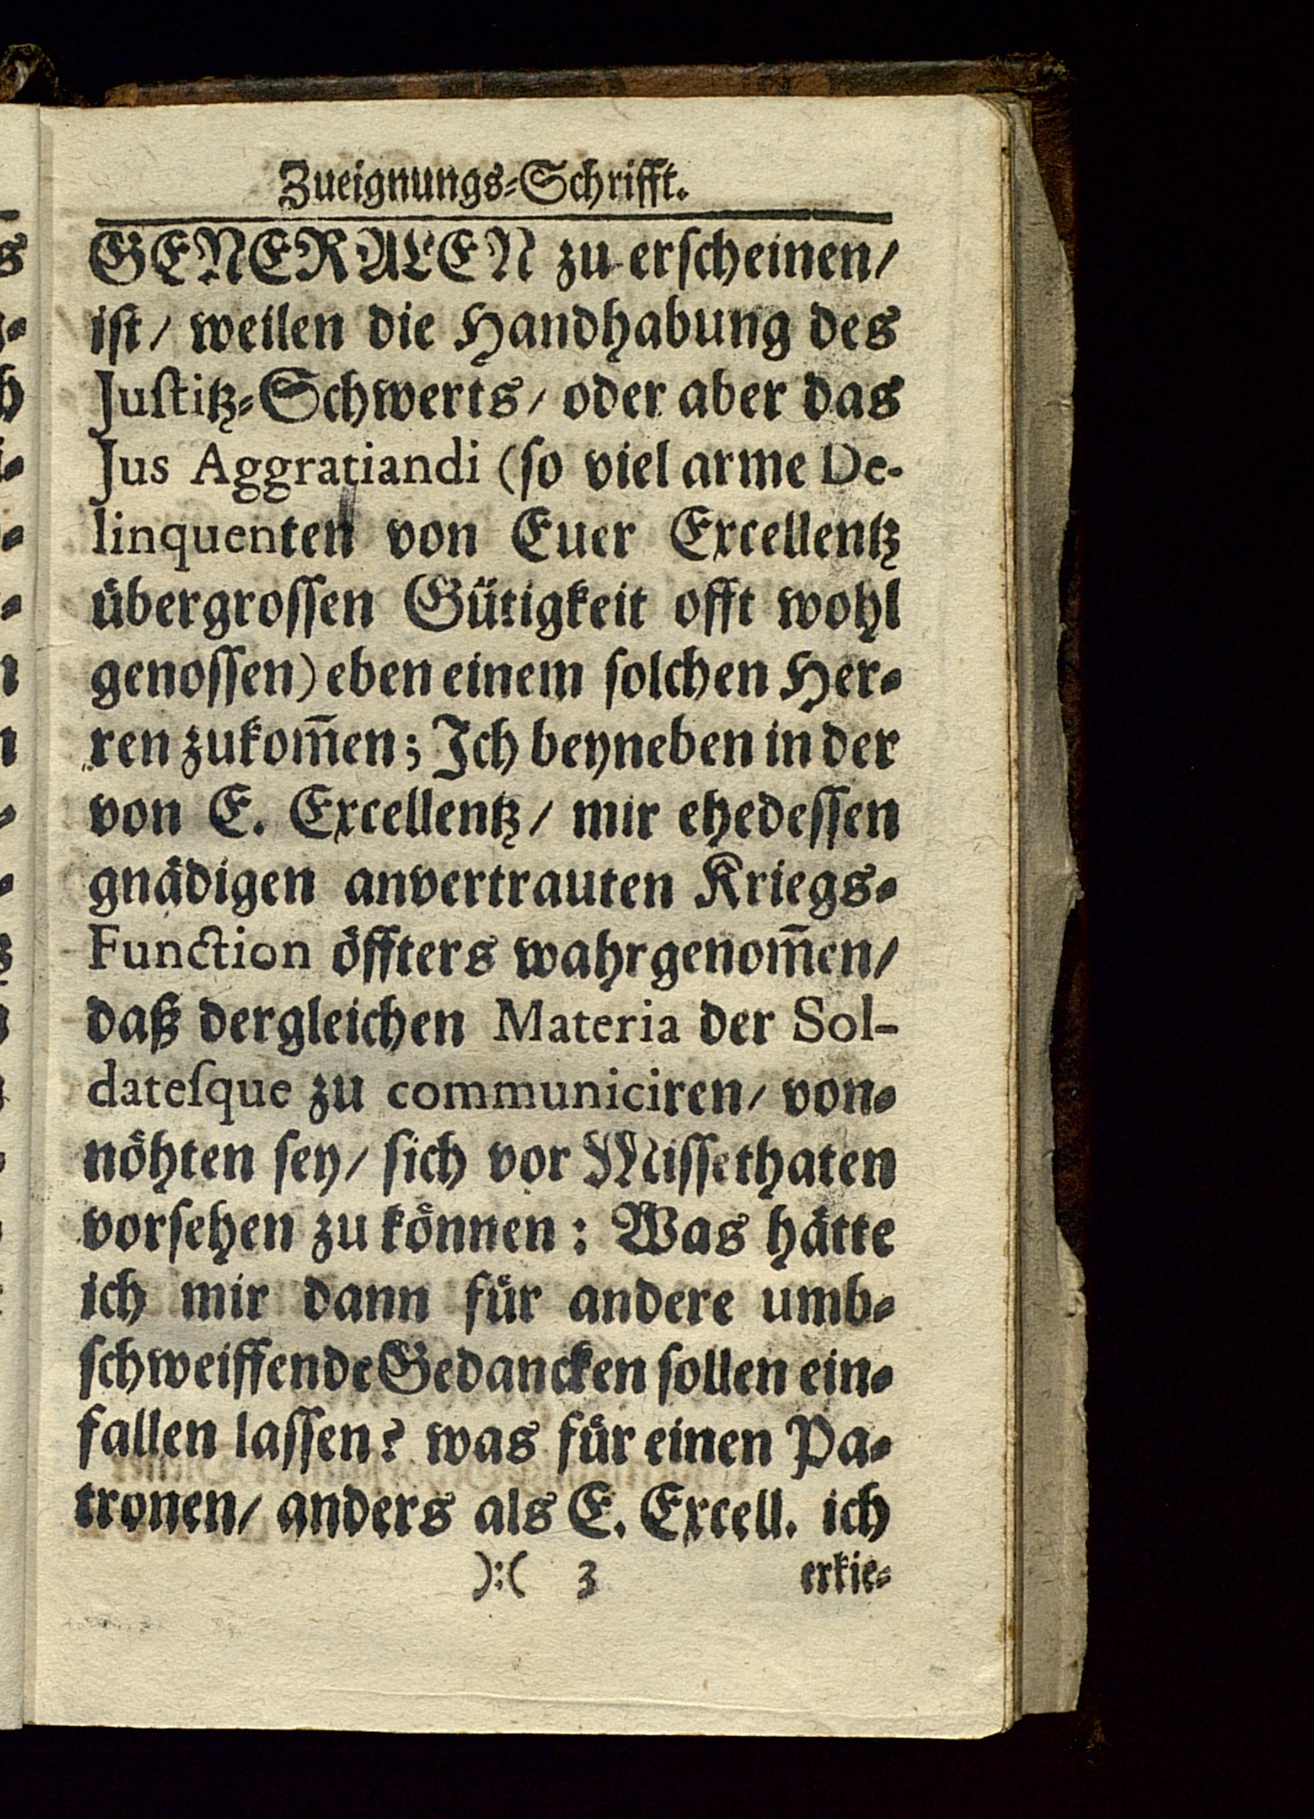 Zueignungs-Schrifft.
GENERALEN zu erscheinen/
ist/ weilen die Handhabung des
Justitz-Schwerts/ oder aber das
Jus Aggratiandi (so viel arme De-
linquenten von Euer Excellentz
übergrossen Gütigkeit offt wohl
genossen) eben einem solchen Her-
ren zukom̃en; Ich beyneben in der
von E. Excellentz/ mir ehedessen
gnädigen anvertrauten Kriegs-
Function öffters wahrgenom̃en/
daß dergleichen Materia der Sol-
datesque zu communiciren/ von-
nöhten sey/ sich vor Missethaten
vorsehen zu können: Was hätte
ich mir dann für andere umb-
schweiffende Gedancken sollen ein-
fallen lassen? was für einen Pa-
tronen/ anders als E. Excell. ich
):( 3 erkie-